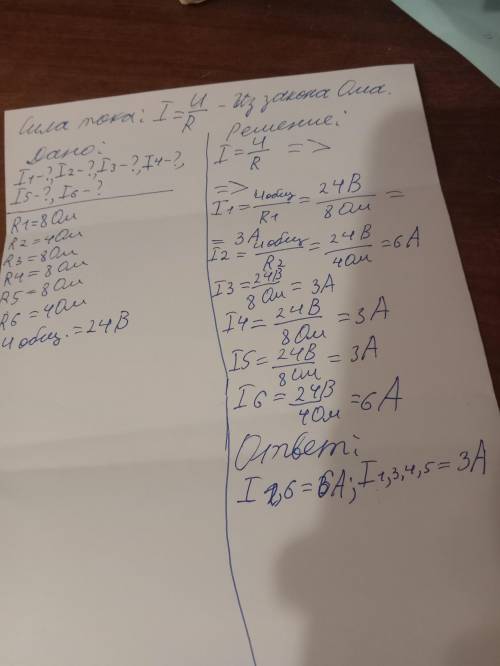 Сила тока: I = U/R - Из закона Ома.
Дано:
I1-?, I2-?, I3-?, I4-?,
I5-?, I6-?
R1=8Ом
R2=4Ом
R3=8Ом
R4=8Ом
R5=8Ом
R6=4Ом
Uобщ.=24В
Решение:
I = U/R =>
=>
I1 = Uобщ/R1 = 24В/8Ом =
= 3А
I2 = Uобщ/R2 = 24В/4Ом = 6А
I3 = 24В/8Ом = 3А
I4 = 24В/8Ом = 3А
I5 = 24В/8Ом = 3А
I6 = 24В/4Ом = 6А
Ответ:
I2,6 = 6А; I1,3,4,5 = 3А